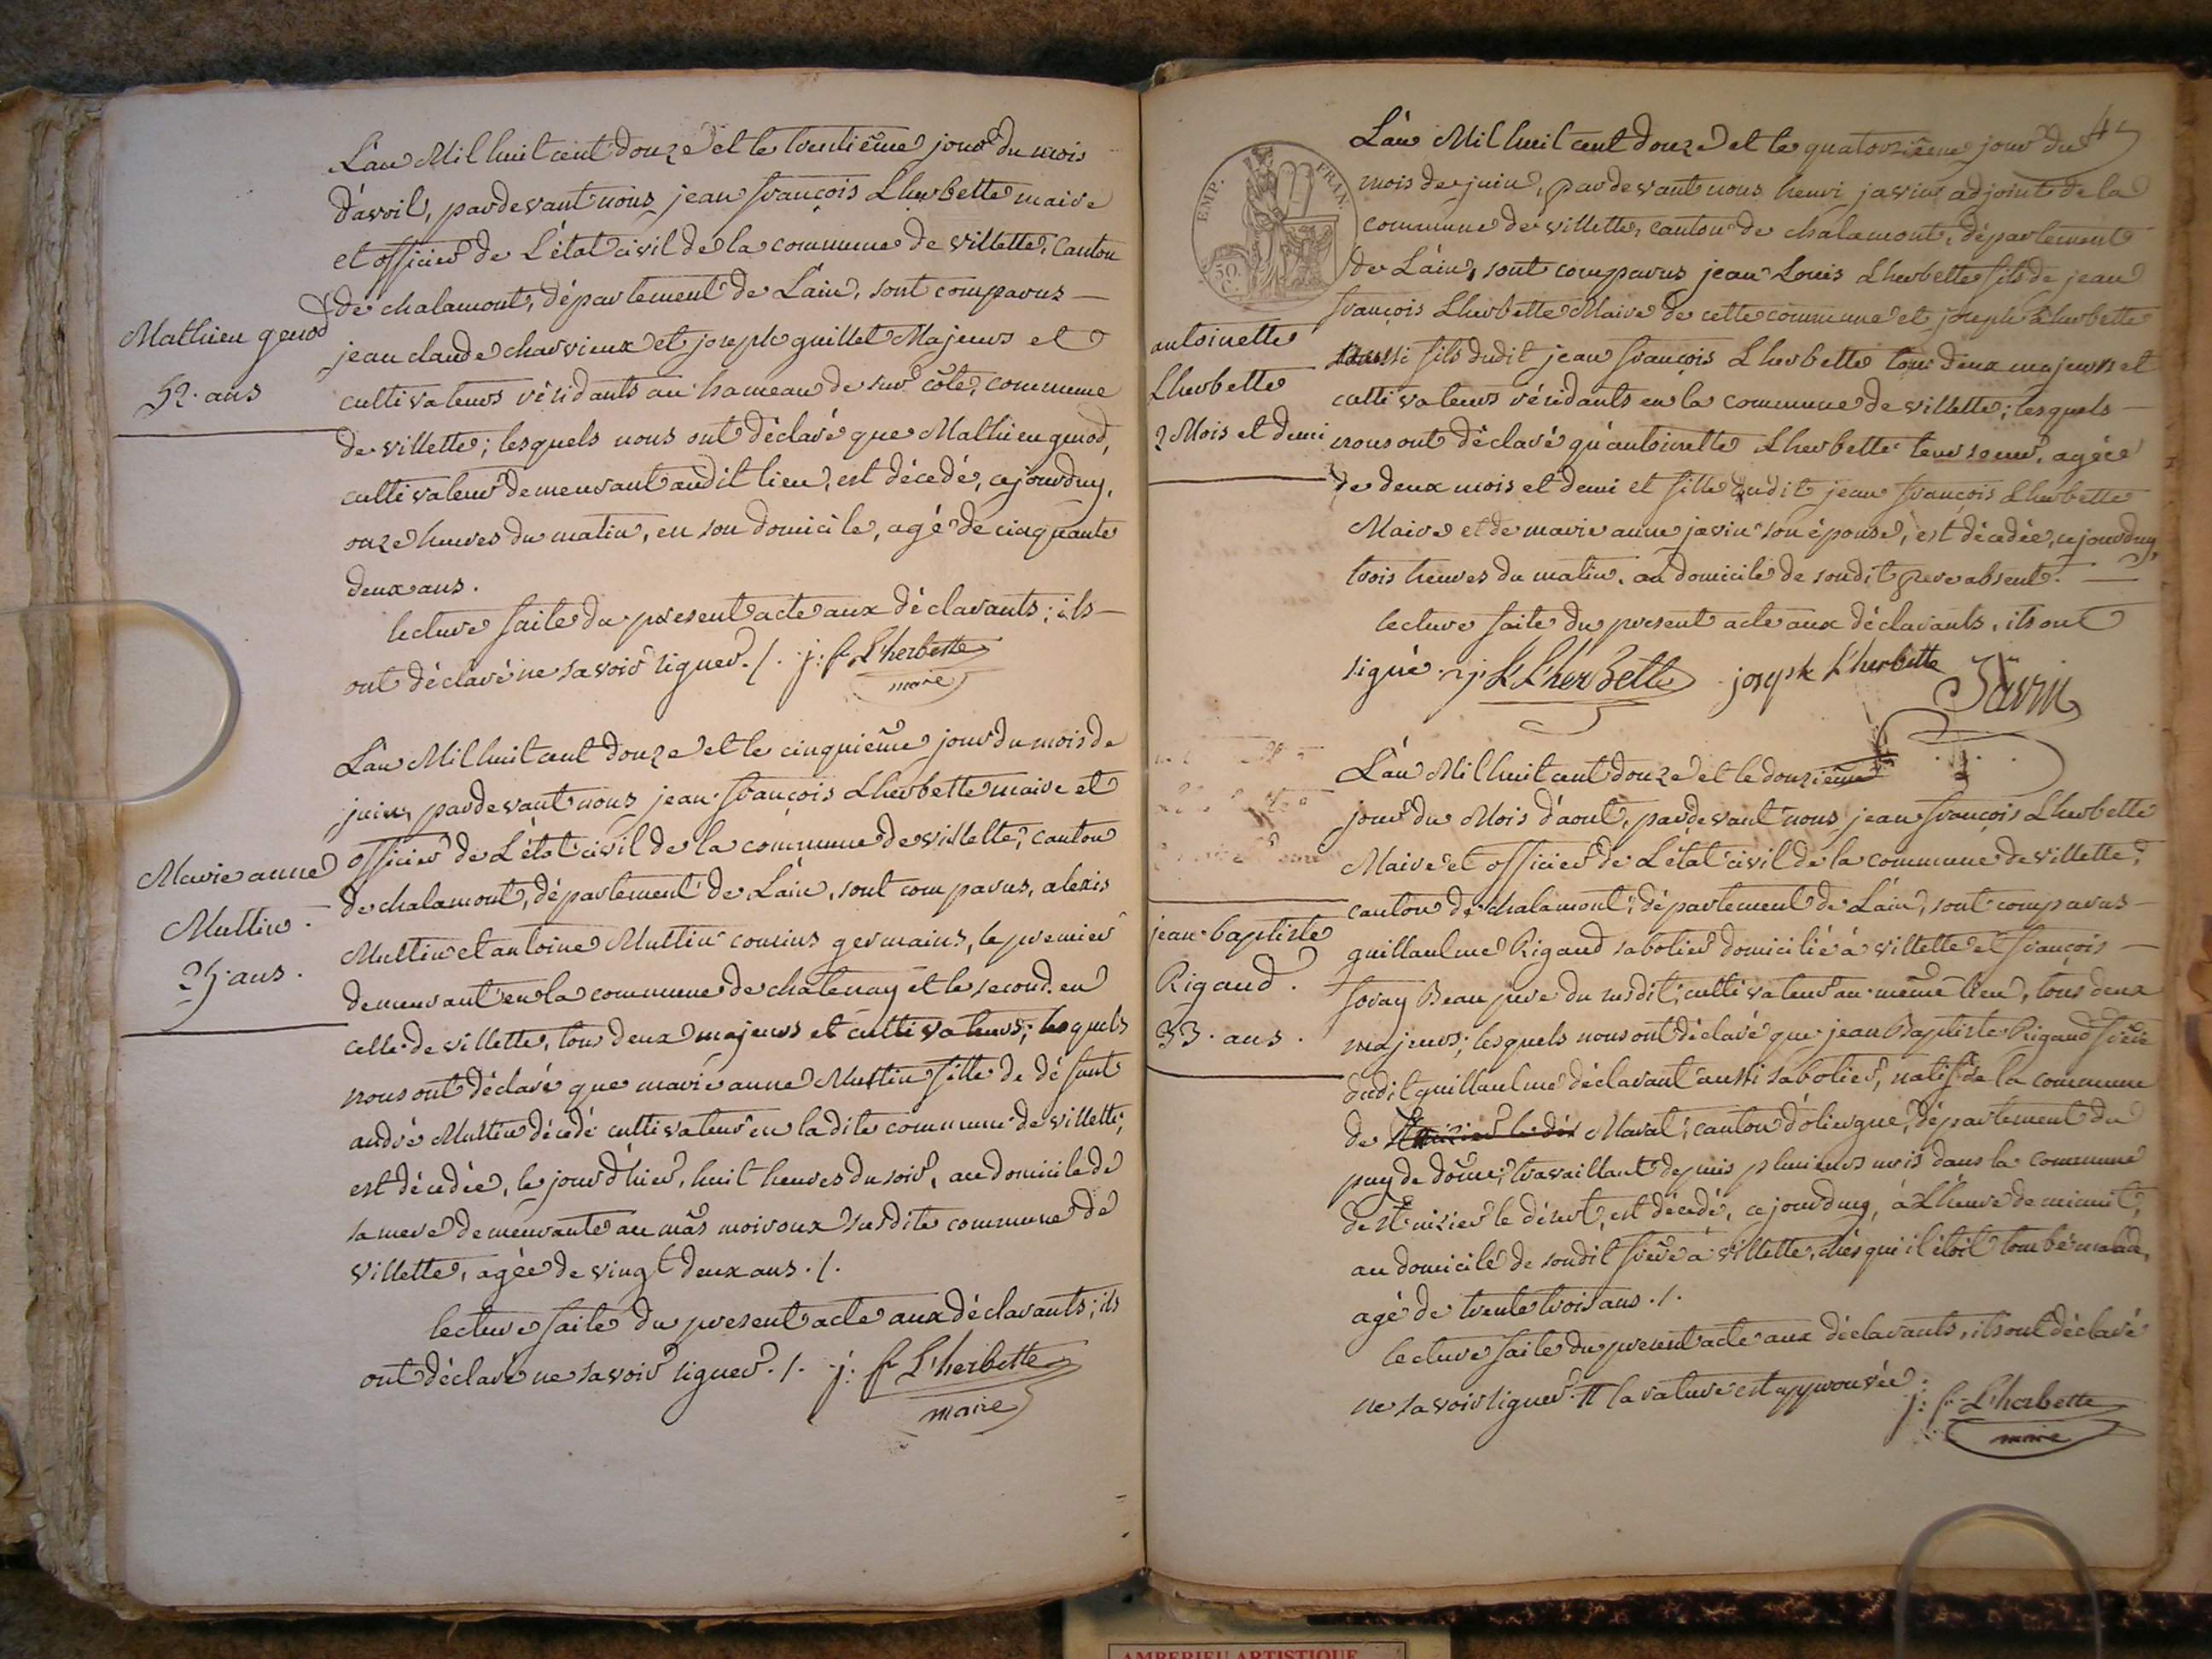 Mathieu genod
52. ans
L'an Mil huit cent douze et le trentième jour du mois
d'avril, pardevant nous jean françois Lherbette maire
et officier de L'état civil de la commune de villette, Canton
de chalamont, département de L'ain, sont comparus —
jean claude charvieux et joseph guillet Majeurs et
cultivateurs résidants au hameau de sur côte, commune
de villette; lesquels nous ont déclaré que Mathieu genod,
cultivateur demeurant audit lieu, est décedé, cejourduy,
onze heures du matin, en son domicile, agé de cinquante
deux ans.
lecture faite du present acte aux déclarants; ils —
ont déclaré ne savoir signer./. j: f. L'herbette
maire
Marie anne
Muttin.
25. ans.
L'an Mil huit cent douze et le cinquième jour du mois de
juin, pardevant nous jean françois Lherbette maire et
officier de L'état civil de la commune de villette, canton
de chalamont, département de L'ain, sont comparus, alexis
Muttin et antoine Muttin cousins germains, le premier
demeurant en la commune de chatenay et le second en
celle de villette, tous deux majeurs et cultivateurs; lesquels
nous ont déclaré que marie anne Muttin fille de défunt
andré Muttin décedé cultivateur en ladite commune de villette,
est décedée, le jour d'hier, huit heures du soir, au domicile de
sa mere demeurante au mâs moiroux susdite commune de
villette, agée de vingt deux ans./.
lecture faite du present acte aux déclarants; ils
ont déclaré ne savoir signer./. j: f. L'herbette
maire
EMP. FRAN.
30 C.
antoinette
Lherbette
2 Mois et demi
L'an Mil huit cent douze et le quatorzième jour du
mois de juin, pardevant nous henri javin adjoint de la
commune de villette, canton de chalamont, département
de L'ain, sont comparus jean Louis Lherbette fils de jean
françois Lherbette Maire de cette commune et joseph Lherbette
aussi fils dudit jean françois Lherbette tous deux majeurs et
cultivateurs résidants en la commune de villette; lesquels —
nous ont déclaré qu'antoinette Lherbette leur soeur, agée
de deux mois et demi et fille dudit jean françois Lherbette
Maire et de marie anne javin son épouse, est décedée, cejourduy,
trois heures du matin, au domicile de sondit pere absent. —
lecture faite du present acte aux déclarants, ils ont
signé. j. L. L'herbette joseph L'herbette Javin
jean baptiste
Rigaud.
33. ans.
L'an Mil huit cent douze et le douzième
jour du Mois d'aout, pardevant nous jean françois Lherbette
Maire et officier de L'état civil de la commune de villette,
canton de chalamont, département de L'ain, sont comparus —
guillaulme Rigaud sabotier domicilié à villette et françois —
foray Beau pere du susdit, cultivateur au même lieu, tous deux
majeurs; lesquels nous ont déclaré que jean Baptiste Rigaud frère
dudit guillaulme déclarant aussi sabotier, natif de la commune
de Marat, canton d'oliergue, département du
puy de dôme, travaillant depuis plusieurs mois dans la commune
de st. nizier le désert, est décedé, cejourduy, à L'heure de minuit,
au domicile de sondit frère à villette, chés qui il étoit tombé malade,
agé de trente trois ans./.
lecture faite du present acte aux déclarants, ils ont déclaré
ne savoir signer. la rature est approuvée.
j: f. L'herbette
maire
AMBERIEU ARTISTIQUE